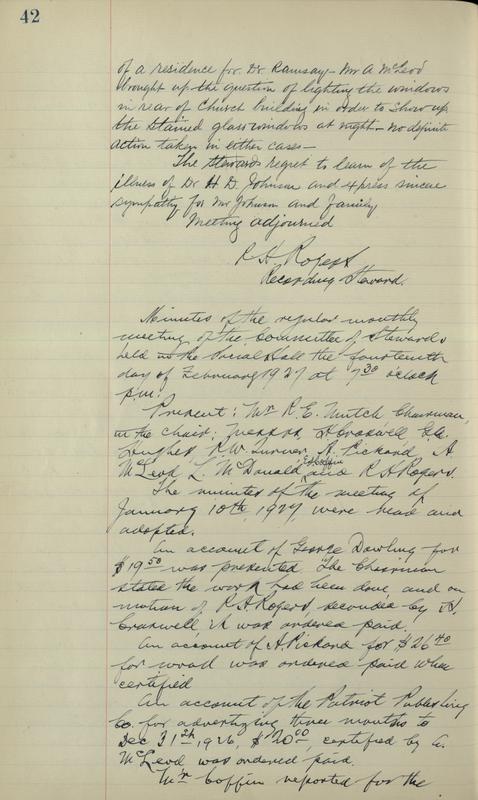 42
of a residence for Dr. Ramsay - Mr A McLeod
brought up the question of lighting the windows
in rear of Church building in order to show up
the stained glass windows at night - No definite
action taken in either case -
The Stewards regret to learn of the
illness of Dr H D. Johnson and express sincere
sympathy for Mr Johnson and family
Meeting adjourned
R H Rogers
Recording Steward.
Minutes of the regular monthly
meeting of the Committee of Stewards
held in the Social Hall the fourteenth
day of February 1927 at 7 30 o'clock
p.m.
Present: Mr R. E. Mutch Chairman,
in the chair; Messrs, H Craswell G. A.
Hughes, R. W. Turner, A. Pickard, A.
McLeod L. McDonald, Coffin and R H Rogers.
The minutes of the meeting of
January 10th, 1927, were read and
adopted.
An account of George Dowling for
$19 50 was presented. The Chairman
stated the work had been done, and on
motion of R H Rogers seconded by H.
Craswell it was ordered paid.
An account of A Pickard for $26 40
for wood was ordered paid when
certified
An account of the Patriot Publishing
Co. for advertizing three months to
Dec 31st, 1926, $20 00, certified by A.
McLeod was ordered paid.
Mr Coffin reported for the